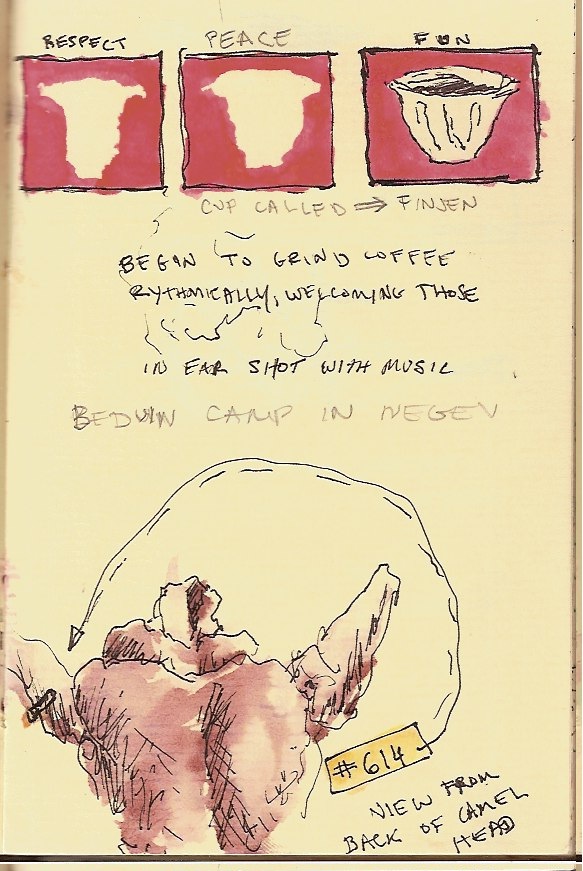 RESPECT PEACE FUN
CUP CALLED ⇒ FINJEN
BEGIN TO GRIND COFFEE
RYTHMICALLY, WELCOMING THOSE
IN EAR SHOT WITH MUSIC
BEDUIN CAMP IN NEGEV
#614
VIEW FROM
BACK OF CAMEL
HEAD